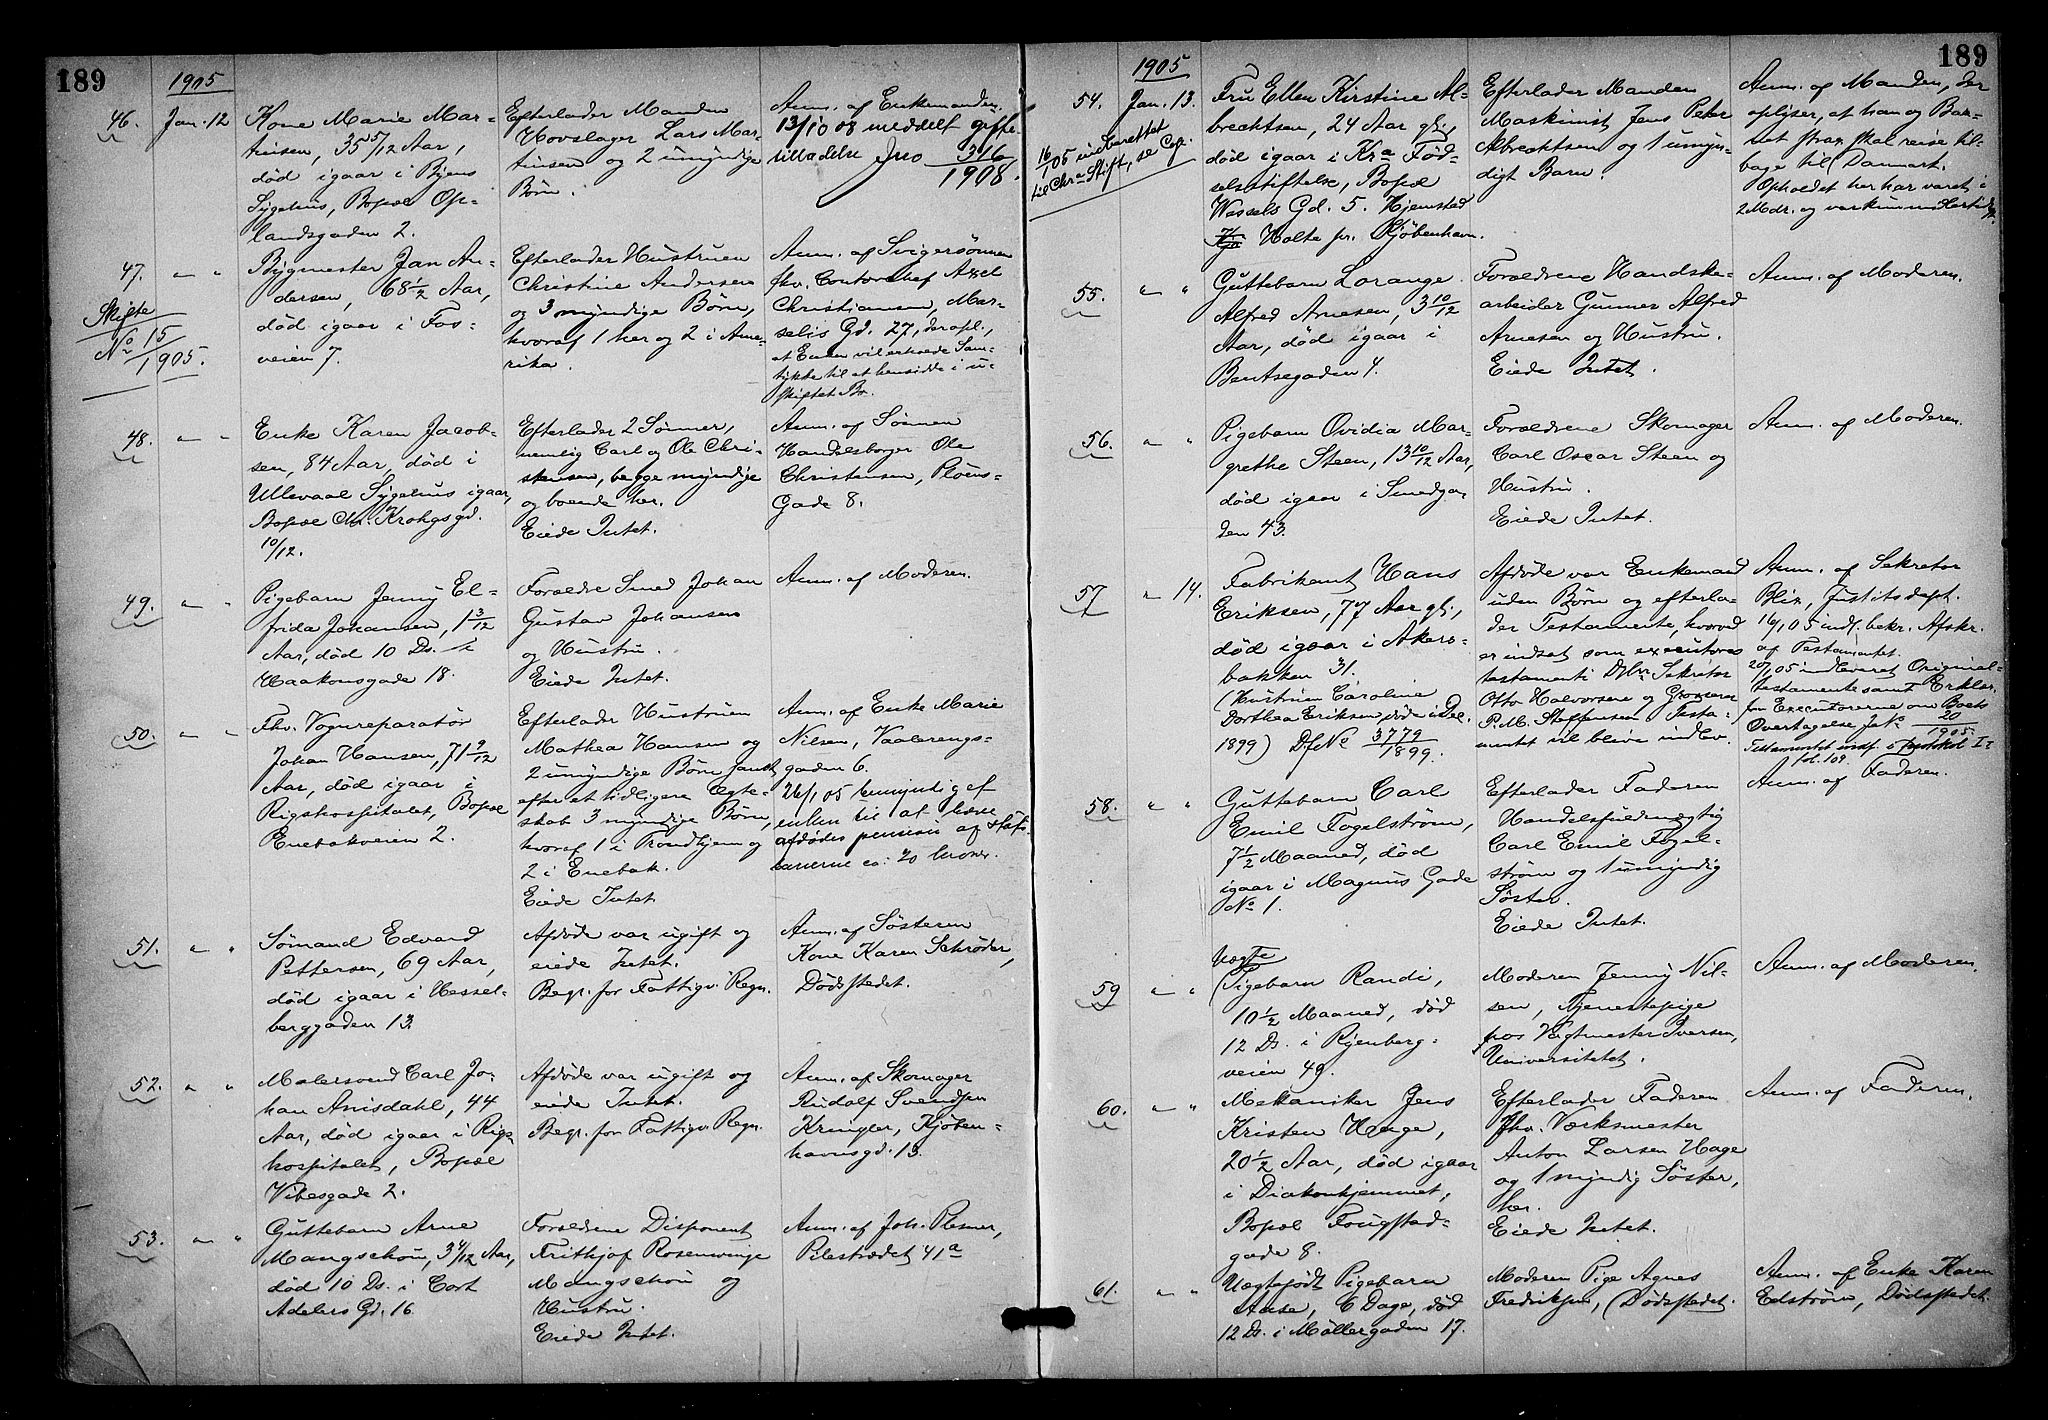 189
1905
46. Jan. 12
Kone Marie Mar-
tinsen, 35 5/12 Aar,
død igaar i Byens
Sygehus, Bopæl Op-
landsgaden 2.
Efterlader Manden
Hovslager Lars Mar-
tinsen og 2 umyndige
Børn.
Anm. af Enkemanden.
13/10 08 meddelt gifte-
tilladelse Jno 346/1908.
47. " "
Skifte
No 15/1905.
Bygmester Jan An-
dersen, 68 1/2 Aar,
død igaar i Fos-
veien 7.
Efterlader Hustruen
Christine Andersen
og 3 myndige Børn,
hvoraf 1 her og 2 i Ame-
rika.
Anm. af Svigersønnen
fhv. Contorchef Axel
Christiansen, Mar-
selis Gd. 27, der opl.,
at Enken vil erhverve Sam-
tykke til at hensidde i u-
skiftet Bo.
48. " "
Enke Karen Jacob-
sen, 84 Aar, død i
Ullevaal Sygehus igaar,
Bopæl Chr. Krohgs gd.
10/12.
Efterlader 2 Sønner,
nemlig Carl og Ole Chri-
stensen, begge myndige
og boende her.
Eiede Intet.
Anm. af Sønnen
Handelsborger Ole
Christensen, Pløens-
Gade 8.
49. " "
Pigebarn Jenny El-
frida Johansen, 1 3/12
Aar, død 10 Ds. i
Haakonsgade 18.
Forældre Smed Johan
Gustav Johansen
og Hustru.
Eiede Intet.
Anm. af Moderen.
50. " "
Fhv. Vognreparatør
Johan Hansen, 71 9/12
Aar, død igaar i
Rigshospitalet, Bopæl
Enebakveien 2.
Efterlader Hustruen
Mathea Hansen og
2 umyndige Børn samt
efter et tidligere Ægte-
skab 3 myndige Børn,
hvoraf 1 i Trondhjem og
2 i Enebak.
Eiede Intet
Anm. af Enke Marie
Nilsen, Vaalerengs-
gaden 6.
26/1 05 bemyndiget
enken til at hæve
afdødes pension af Stats-
banerne ca: 20 kroner.
51. " "
Sømand Edvard
Pettersen, 69 Aar,
død igaar i Hessel-
berggaden 13.
Afdøde var ugift og
eiede Intet.
Begr. for Fattigv. Regn.
Anm. af Søsteren
Kone Karen Schrøder,
Dødsstedet.
52. " "
Malersvend Carl Jo-
han Arnisdahl, 44
Aar, død igaar i Rigs-
hospitalet, Bopæl
Vibesgade 2.
Afdøde var ugift og
eiede Intet.
Begr. for Fattigv. Regn.
Anm. af Skomager
Rudolf Svendsen
Kringler, Kjøben-
havnsgd. 13.
53. " "
Guttebarn Arne
Mangschou, 3 4/12 Aar,
død 10 Ds. i Cort
Adelers Gd. 16.
Forældrene Disponent
Frithjof Rosenvinge
Mangschou og
Hustru.
Eiede Intet.
Anm. af Joh. Plesner,
Pilestrædet 41a
189
1905
54. Jan. 13.
16/1 05 indberettet
til Chra Stift, se Cop.
Fru Ellen Kirstine Al-
brechtsen, 24 Aar gl.,
død igaar i Kra Fød-
selsstiftelse, Bopæl
Wessels Gd. 5. Hjemsted
Holte pr. Kjøbenhavn.
Efterlader Manden
Maskinist Jens Peter
Albrechtsen og 1 umyn-
digt Barn.
Anm. af Manden, der
oplyser, at han og Bar-
net strax skal reise til-
bage til Danmark.
Opholdet her har været i
2 Mdr. og var kun midlertidigt.
55. " "
Guttebarn Lorange
Alfred Arnesen, 3 10/12
Aar, død igaar i
Bentsegaden 4.
Forældrene Handske-
arbeider Gunner Alfred
Arnesen og Hustru.
Eiede Intet.
Anm. af Moderen.
56. " "
Pigebarn Ovidia Mar-
grethe Steen, 13 10/12 Aar,
død igaar i Smedga-
den 43.
Forældrene Skomager
Carl Oscar Steen og
Hustru.
Eiede Intet.
Anm. af Moderen.
57 " 14.
Fabrikant Hans
Eriksen, 77 Aar gl.,
død igaar i Akers-
bakken 31.
(Hustruen Caroline
Dorthea Eriksen døde i Del.
1899) Df No 3779/1899.
Afdøde var Enkemand
uden Børn og efterla-
der Testamente, hvorved
er indsat som executores
testamenti DHrr. Sekretær
Otto Halvorsen og Grosserer
P. M. Steffensen. Testa-
mentet vil blive indlev.
Anm. af Sekretær
Blix, Justitsdept.
16/1 05 indl. bekr. Afskr.
af Testamentet.
20/1 05 indleveret Original-
testamente samt Erklær.
fra Executorerne om Boets
Overtagelse Jno 20/1905.
Testamentet indf. i protokol I-
fol. 109.
58. " "
Guttebarn Carl
Emil Fogelstrøm,
7 1/2 Maaned, død
igaar i Magnus Gade
No 1.
Efterlader Faderen
Handelsfuldmægtig
Carl Emil Fogel-
strøm og 1 umyndig
Søster.
Eiede Intet.
Anm. af Faderen.
59 " "
Uægte
Pigebarn Randi,
10 1/2 Maaned, død
12 Ds. i Ryenberg-
veien 49.
Moderen Jenny Nil-
sen, Tjenestepige
hos Vagtmester Iversen,
Universitetet.
Anm. af Moderen.
60. " "
Mekaniker Jens
Kristen Hage,
20 1/2 Aar, død igaar
i Diakonhjemmet,
Bopæl Fougstad-
gade 8.
Efterlader Faderen
fhv. Værksmester
Anton Larsen Hage
og 1 myndig Søster,
her.
Eiede Intet.
Anm. af Faderen.
61. " "
Uægtefødt Pigebarn
Aase, 6 Dage, død
12 Ds. i Møllergaden 17.
Moderen Pige Agnes
Fredriksen, Dødsstedet.
Anm. af Enke Karen
Edstrøm, Dødsstedet.